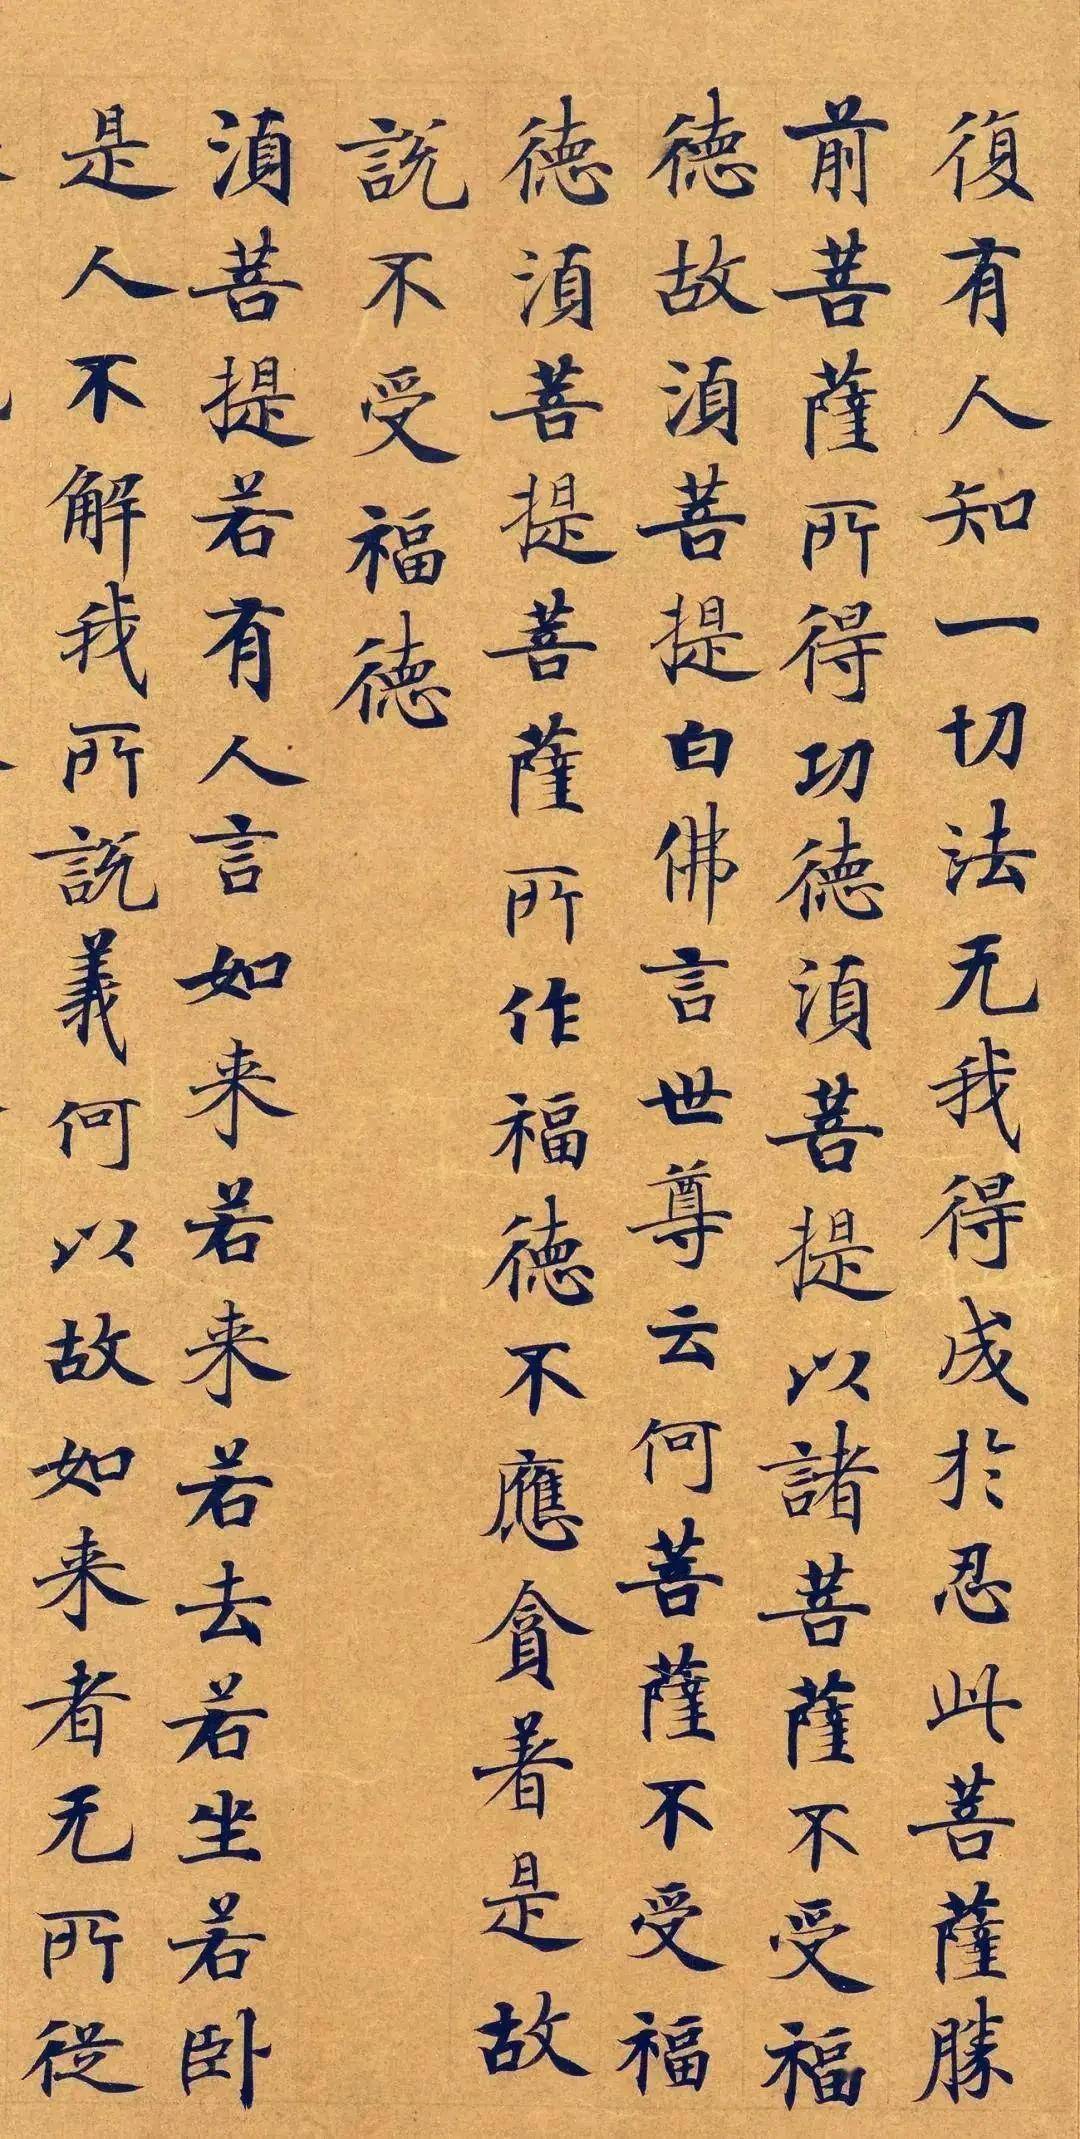 復有人知一切法无我得成於忍此菩薩勝
前菩薩所得功德須菩提以諸菩薩不受福
德故須菩提白佛言世尊云何菩薩不受福
德須菩提菩薩所作福德不應貪著是故
說不受福德
須菩提若有人言如来若来若去若坐若卧
是人不解我所說義何以故如来者无所從